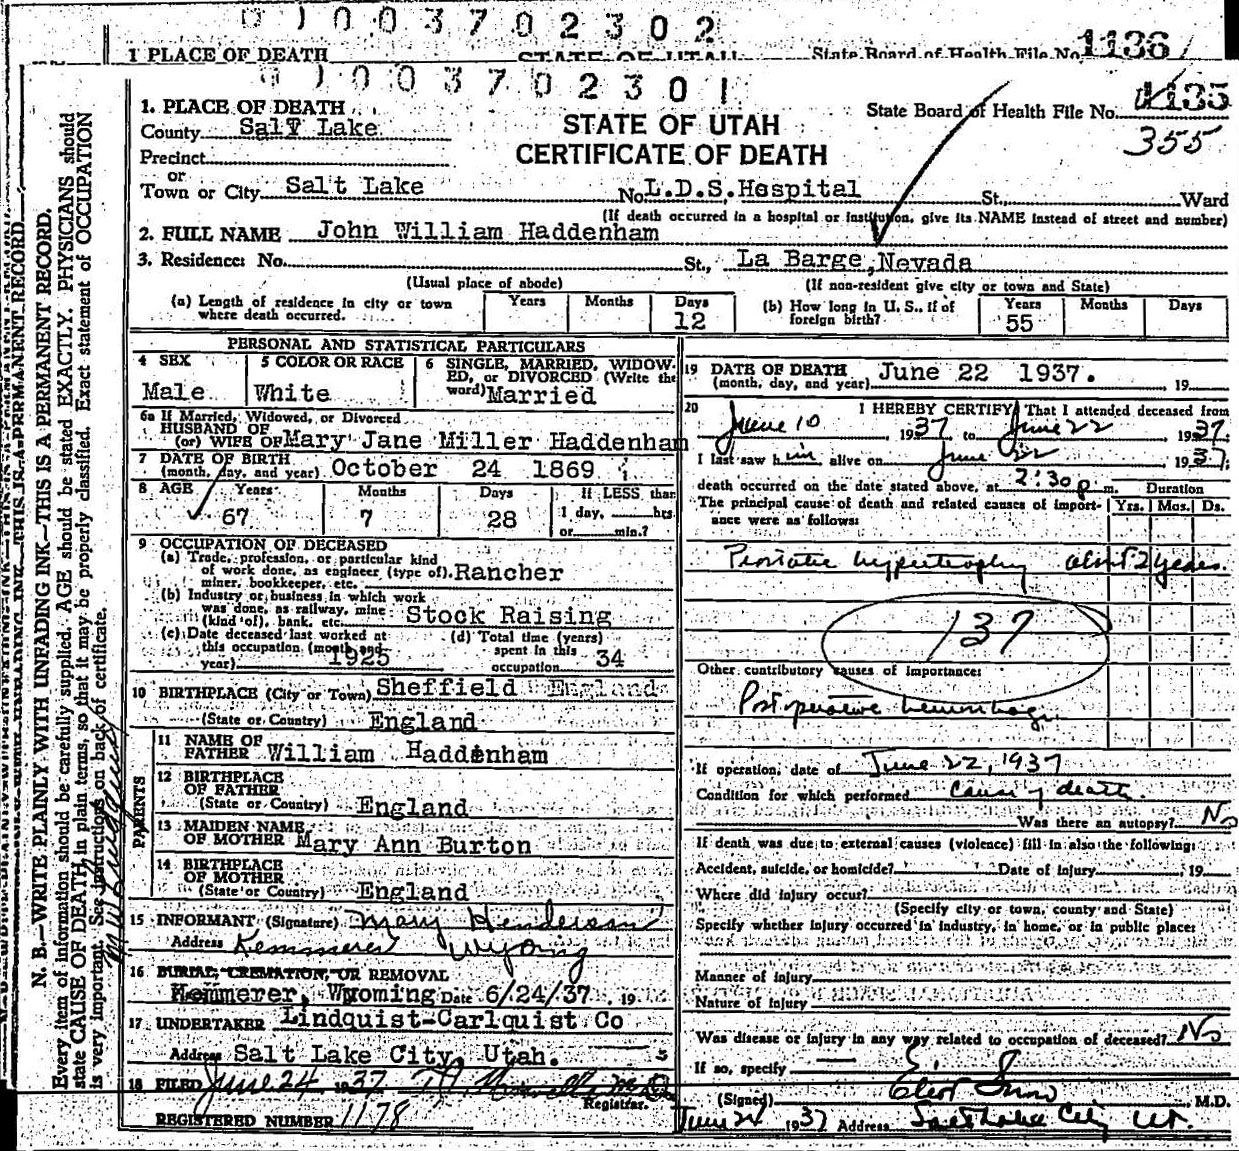 0 1 0 0 3 7 0 2 3 0 2
1 PLACE OF DEATH STATE OF UTAH State Board of Health File No. 1136
0 1 0 0 3 7 0 2 3 0 1
1. PLACE OF DEATH
County Salt Lake
State Board of Health File No. 1135
355
STATE OF UTAH
CERTIFICATE OF DEATH
Precinct
or
Town or City Salt Lake No. L.D.S. Hospital St., Ward
(If death occurred in a hospital or institution, give its NAME instead of street and number)
2. FULL NAME John William Haddenham
3. Residence: No. St., La Barge, Nevada
(Usual place of abode) (If non-resident give city or town and State)
(a) Length of residence in city or town where death occurred. Years Months Days 12
(b) How long in U. S., if of foreign birth? Years 55 Months Days
PERSONAL AND STATISTICAL PARTICULARS
4 SEX Male
5 COLOR OR RACE White
6 SINGLE, MARRIED, WIDOWED, or DIVORCED (Write the word) Married
6a If Married, Widowed, or Divorced
HUSBAND OF
(or) WIFE OF Mary Jane Miller Haddenham
7 DATE OF BIRTH
(month, day, and year) October 24 1869
8 AGE Years 67 Months 7 Days 28 If LESS than 1 day, hrs. or min.?
9 OCCUPATION OF DECEASED
(a) Trade, profession, or particular kind
of work done, as engineer (type of), Rancher
miner, bookkeeper, etc.
(b) Industry or business in which work
was done, as railway, mine
(kind of), bank, etc. Stock Raising
(c) Date deceased last worked at
this occupation (month and
year) 1925
(d) Total time (years)
spent in this
occupation 34
10 BIRTHPLACE (City or Town) Sheffield England
(State or Country) England
PARENTS
11 NAME OF
FATHER William Haddenham
12 BIRTHPLACE
OF FATHER
(State or Country) England
13 MAIDEN NAME
OF MOTHER Mary Ann Burton
14 BIRTHPLACE
OF MOTHER
(State or Country) England
15 INFORMANT (Signature) Mary Henderson
Address Kemmerer Wyoing
16 BURIAL, CREMATION, OR REMOVAL
Kemmerer, Wyoming Date 6/24/37 19
17 UNDERTAKER Lindquist-Carlquist Co
Address Salt Lake City, Utah.
18 FILED June 24 1937
Registrar.
REGISTERED NUMBER 1178
19 DATE OF DEATH
(month, day, and year) June 22 1937. 19
20 I HEREBY CERTIFY, That I attended deceased from
June 10 1937 to June 22 1937.
I last saw him alive on June 22 1937;
death occurred on the date stated above, at 2:30 p m.
Duration
The principal cause of death and related causes of importance were as follows: Yrs. Mos. Ds.
Prostatic hypertrophy about 2 years.
137
Other contributory causes of importance:
Postoperative hemorrhage
If operation, date of June 22, 1937
Condition for which performed cause of death.
Was there an autopsy? No
If death was due to external causes (violence) fill in also the following:
Accident, suicide, or homicide? Date of Injury 19
Where did injury occur?
(Specify city or town, county and State)
Specify whether injury occurred in industry, in home, or in public place:
Manner of injury
Nature of Injury
Was disease or injury in any way related to occupation of deceased? No
If so, specify
(Signed) Eliot Snow M.D.
June 24 1937 Address Salt Lake City Ut.
N. B.—WRITE PLAINLY WITH UNFADING INK—THIS IS A PERMANENT RECORD.
Every item of information should be carefully supplied. AGE should be stated EXACTLY. PHYSICIANS should
state CAUSE OF DEATH in plain terms, so that it may be properly classified. Exact statement of OCCUPATION
is very important. See instructions on back of certificate.